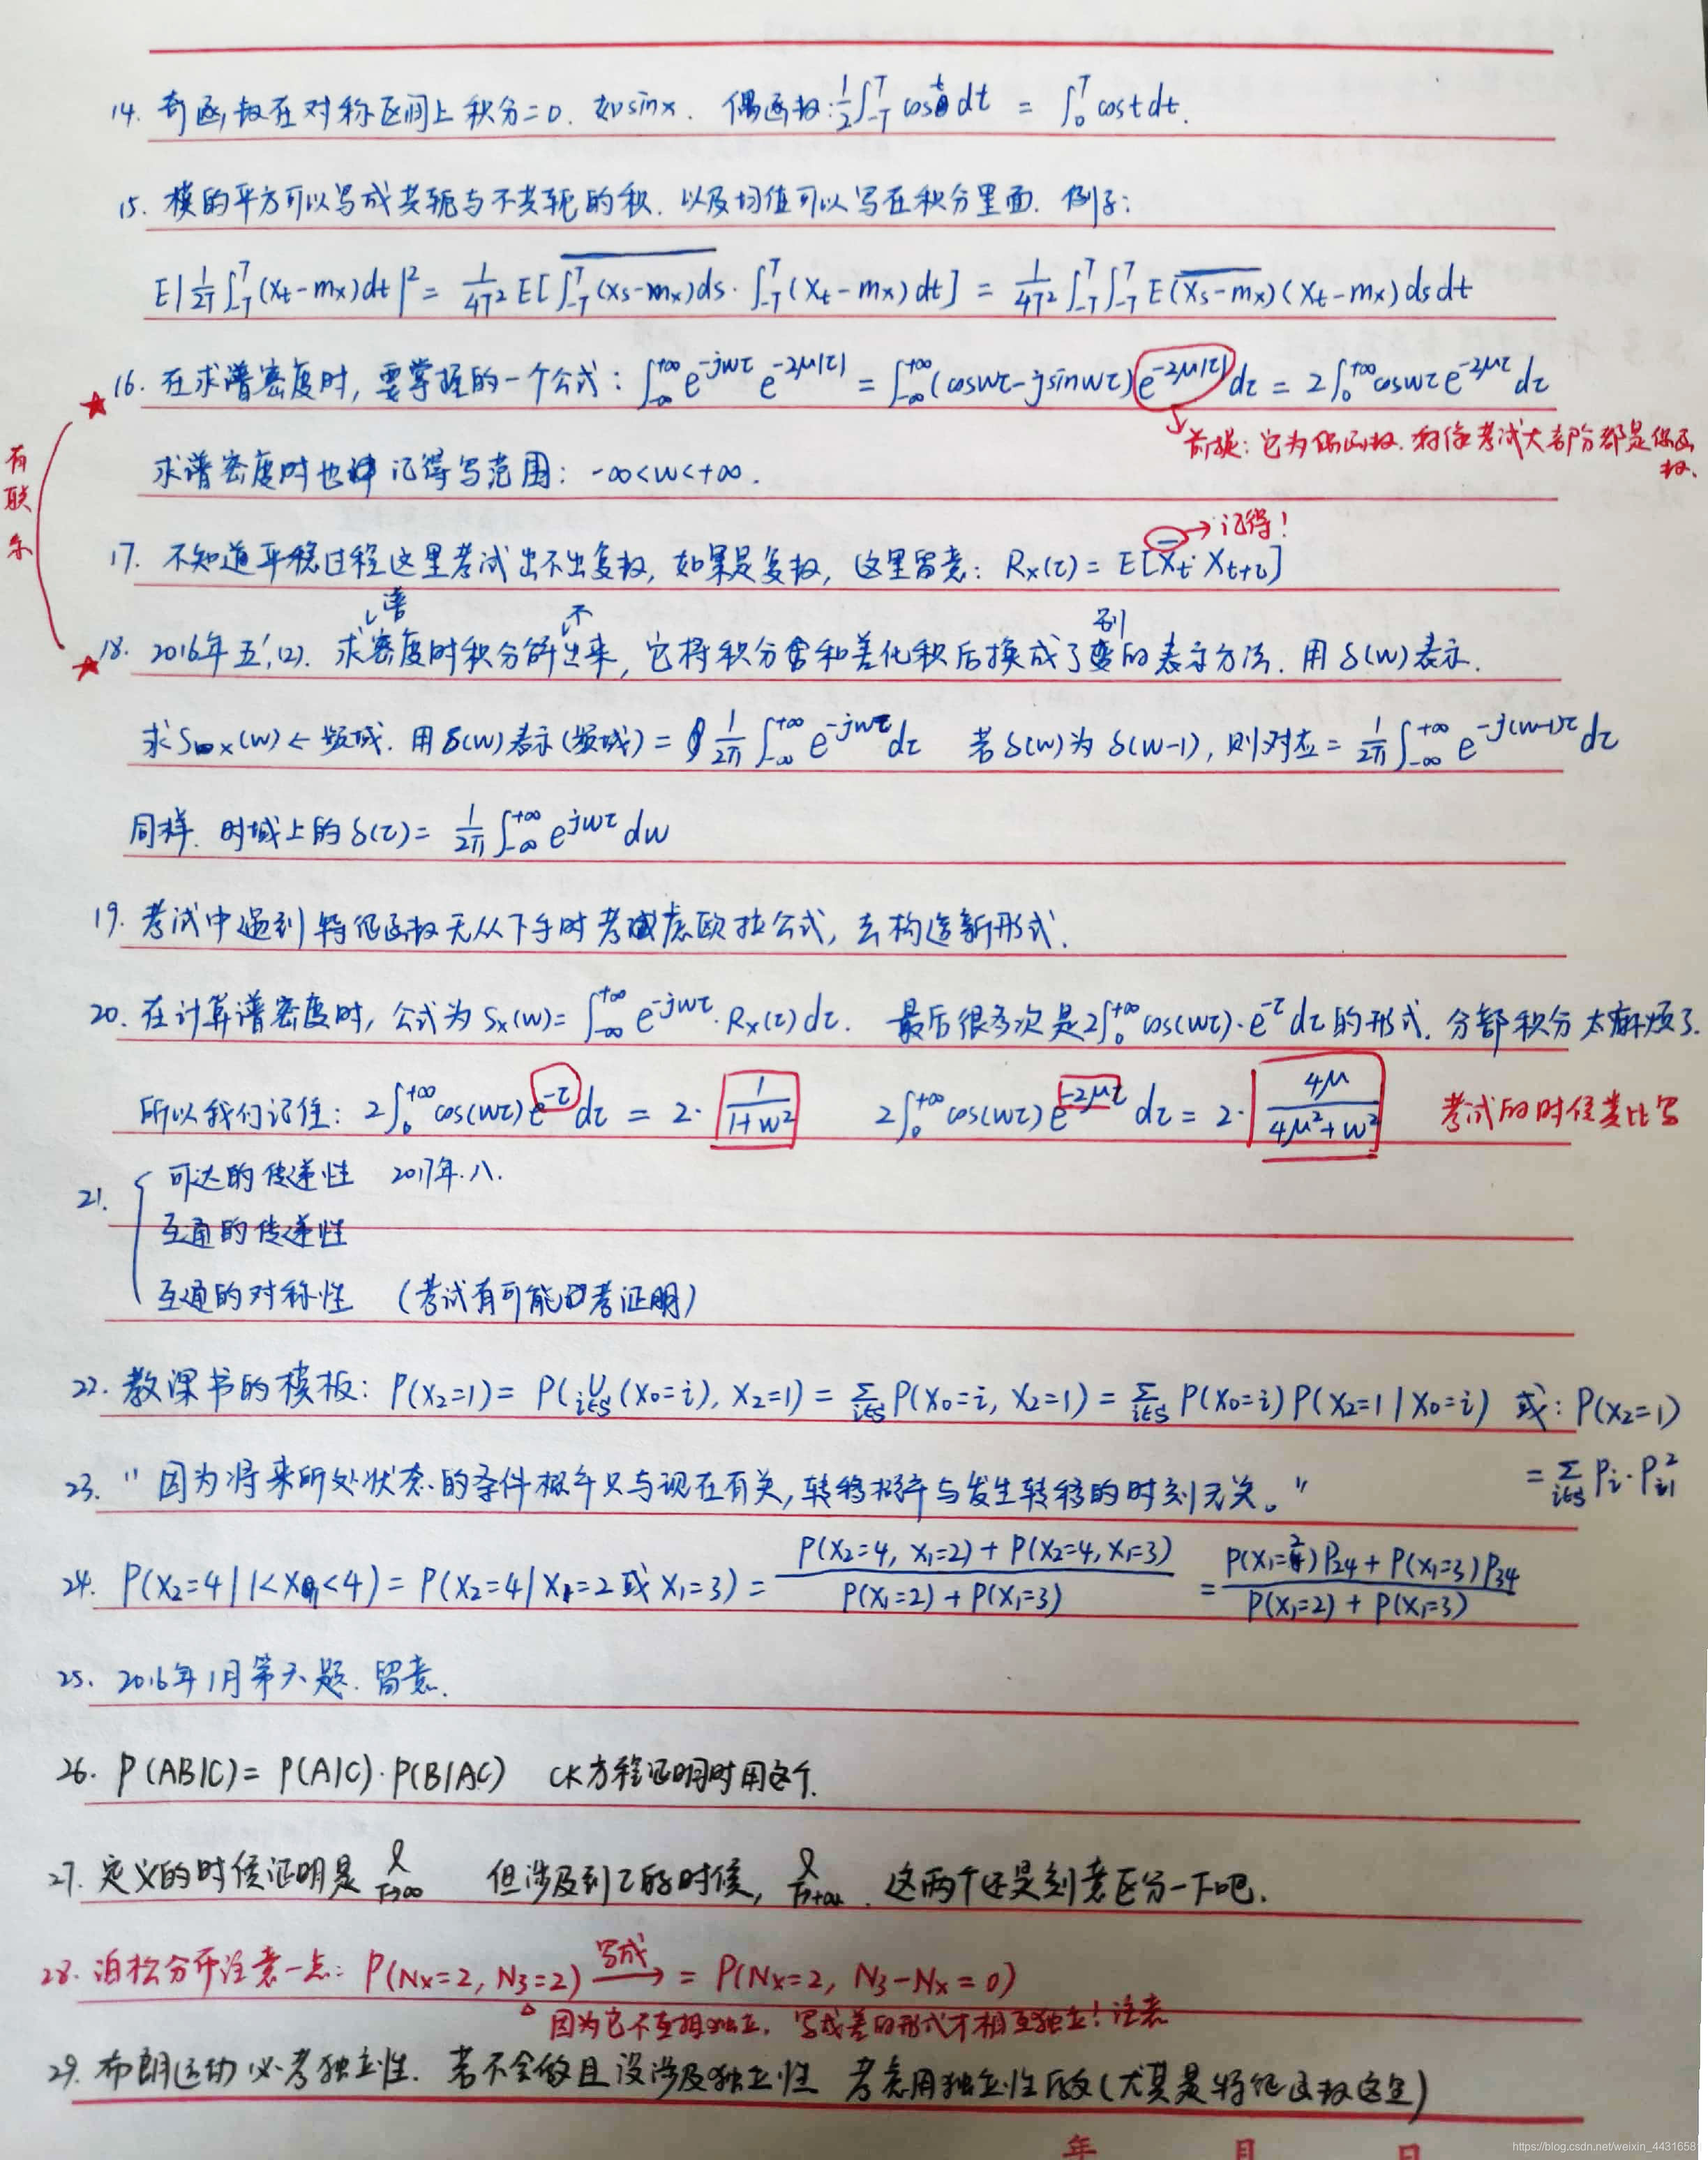 14. 奇函数在对称区间上积分=0. 如sinx. 偶函数:½∫_{-T}^{T} cost dt = ∫_0^T costdt.
15. 模的平方可以写成共轭与不共轭的积. 以及均值可以写在积分里面. 例子:
E|1/2T ∫_{-T}^{T}(Xt-mx)dt|² = 1/4T² E[\overline{∫_{-T}^{T}(Xs-mx)ds}·∫_{-T}^{T}(Xt-mx)dt] = 1/4T² ∫_{-T}^{T}∫_{-T}^{T} E(\overline{Xs-mx})(Xt-mx)dsdt
★16. 在求谱密度时, 要掌握的一个公式: ∫_{-∞}^{+∞} e^{-jwτ} e^{-2μ|τ|} = ∫_{-∞}^{+∞}(coswτ-jsinwτ)e^{-2μ|τ|}dτ = 2∫_0^{+∞}coswτe^{-2μτ}dτ
前提: 它为偶函数. 考试大部分都是偶函数.
有联系
求谱密度时也 记得写范围: -∞<w<+∞.
→记得!
17. 不知道平稳过程这里考试出不出复数, 如果是复数, 这里留意: Rx(τ) = E[\overline{Xt}·Xt+τ]
★18. 2016年五,(2). 求谱密度时积分解不出来, 它将积分含和差化积后换成了别的表示方法. 用δ(w)表示.
求Sx(w)←频域. 用δ(w)表示(频域) = 1/2π ∫_{-∞}^{+∞} e^{-jwτ}dτ 若δ(w)为δ(w-1), 则对应 = 1/2π ∫_{-∞}^{+∞} e^{-j(w-1)τ}dτ
同样. 时域上的δ(τ) = 1/2π ∫_{-∞}^{+∞} e^{jwτ}dw
19. 考试中遇到特征函数无从下手时考虑欧拉公式, 去构造新形式.
20. 在计算谱密度时, 公式为Sx(w)=∫_{-∞}^{+∞} e^{-jwτ}·Rx(τ)dτ. 最后很多次是2∫_0^{+∞}cos(wτ)·e^{-τ}dτ的形式. 分部积分太麻烦了.
所以我们记住: 2∫_0^{+∞}cos(wτ)e^{-τ}dτ = 2·1/(1+w²) 2∫_0^{+∞}cos(wτ)e^{-2μτ}dτ = 2·4μ/(4μ²+w²) 考试的时候类比写
21. { 可达的传递性 2017年.八.
互通的传递性
互通的对称性 (考试有可能考证明)
22. 教课书的模板: P(X2=1) = P(∪_{i∈S}(X0=i), X2=1) = Σ_{i∈S}P(X0=i, X2=1) = Σ_{i∈S} P(X0=i)P(X2=1|X0=i) 或: P(X2=1)
= Σ_{i∈S} Pi·P²_{i1}
23. "因为将来所处状态的条件概率只与现在有关, 转移概率与发生转移的时刻无关。"
24. P(X2=4|1<X1<4) = P(X2=4|X1=2或X1=3) = [P(X2=4, X1=2)+P(X2=4,X1=3)]/[P(X1=2)+P(X1=3)] = [P(X1=2)P24+P(X1=3)P34]/[P(X1=2)+P(X1=3)]
25. 2016年1月第六题. 留意.
26. P(AB|C) = P(A|C)·P(B|AC) CK方程证明时用这个.
27. 定义的时候证明是 l_{T→∞} 但涉及到τ的时候, l_{T→+∞}. 这两个还是刻意区分一下吧.
28. 泊松分布注意一点: P(Nx=2, N3=2) 写成→ = P(Nx=2, N3-Nx=0)
因为它不互相独立. 写成差的形式才相互独立! 注意
29. 布朗运动必考独立性. 若不会做且没涉及独立性 考虑用独立性 (尤其是特征函数这里)
年 月 日
https://blog.csdn.net/weixin_4431658